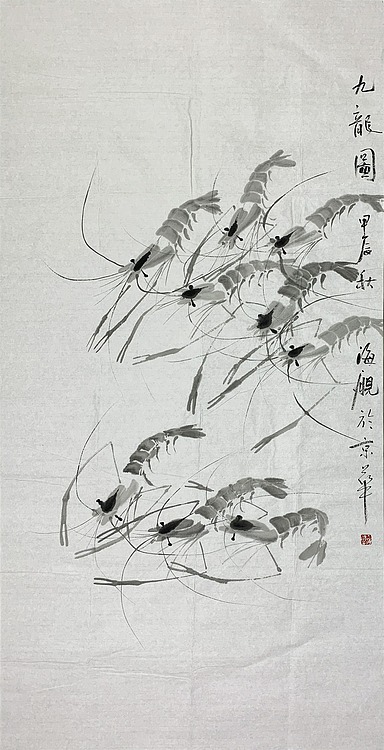 九龍圖 甲辰秋 海舰於京華